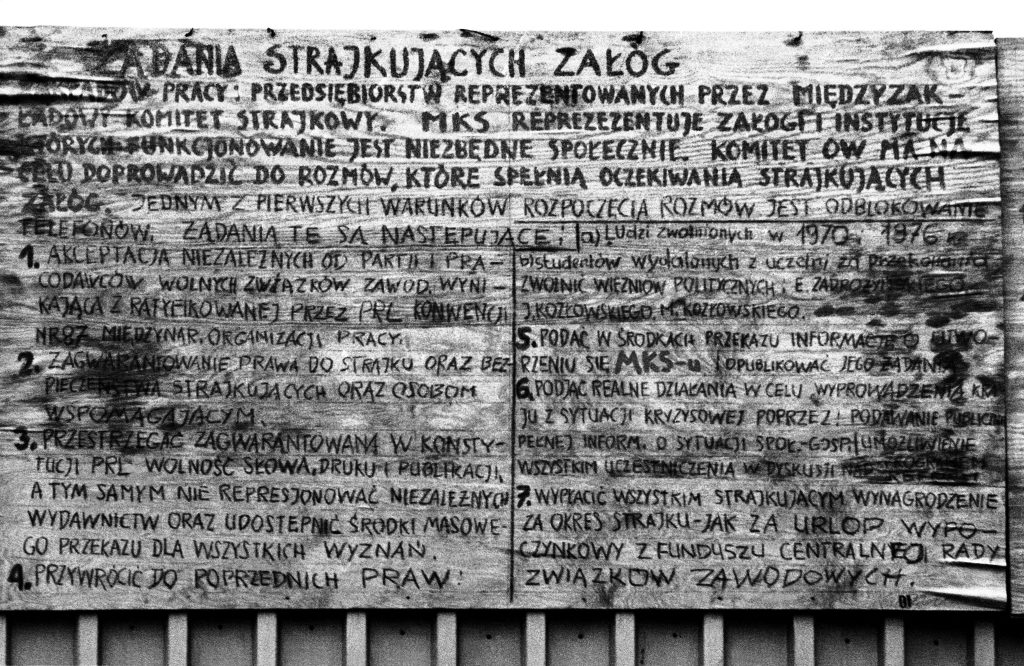 ŻĄDANIA STRAJKUJĄCYCH ZAŁÓG
ZAKŁADÓW PRACY I PRZEDSIĘBIORSTW REPREZENTOWANYCH PRZEZ MIĘDZYZAK-
ŁADOWY KOMITET STRAJKOWY. MKS REPREZEZENTUJE ZAŁOGI I INSTYTUCJE
KTÓRYCH FUNKCJONOWANIE JEST NIEZBĘDNE SPOŁECZNIE. KOMITET ÓW MA NA
CELU DOPROWADZIĆ DO ROZMÓW, KTÓRE SPEŁNIĄ OCZEKIWANIA STRAJKUJĄCYCH
ZAŁÓG. JEDNYM Z PIERWSZYCH WARUNKÓW ROZPOCZĘCIA ROZMÓW JEST ODBLOKOWANIE
TELEFONÓW. ŻĄDANIA TE SĄ NASTĘPUJĄCE:
1. AKCEPTACJA NIEZALEŻNYCH OD PARTJI I PRA-
CODAWCÓW WOLNYCH ZWIĄZKÓW ZAWOD. WYNI-
KAJĄCA Z RATYFIKOWANEJ PRZEZ PRL KONWENCJI
NR 87 MIĘDZYNAR. ORGANIZACJI PRACY.
2. ZAGWARANTOWANIE PRAWA DO STRAJKU ORAZ BEZ-
PIECZEŃSTWA STRAJKUJĄCYCH ORAZ OSOBOM
WSPOMAGAJĄCYM.
3. PRZESTRZEGAĆ ZAGWARANTOWANĄ W KONSTY-
TUCJI PRL WOLNOŚĆ SŁOWA, DRUKU I PUBLIKACJI,
A TYM SAMYM NIE REPRESJONOWAĆ NIEZALEŻNYCH
WYDAWNICTW ORAZ UDOSTĘPNIĆ ŚRODKI MASOWE-
GO PRZEKAZU DLA WSZYSTKICH WYZNAŃ.
4. PRZYWRÓCIĆ DO POPRZEDNICH PRAW:
a) Ludzi zwolnionych w 1970 i 1976
b) studentów wydalonych z uczelni za przekonania
ZWOLNIĆ WIĘŹNIÓW POLITYCZNYCH: E. ZADROŻYŃSKIEGO,
J. KOZŁOWSKIEGO, M. KOZŁOWSKIEGO.
5. PODAĆ W ŚRODKACH PRZEKAZU INFORMACJĘ O UTWO-
RZENIU SIĘ MKS-u I OPUBLIKOWAĆ JEGO ŻĄDANIA
6. PODJĄĆ REALNE DZIAŁANIA W CELU WYPROWADZENIA KRA-
JU Z SYTUACJI KRYZYSOWEJ POPRZEZ: PODAWANIE PUBLICZNIE
PEŁNEJ INFORM. O SYTUACJI SPOŁ.-GOSP. I UMOŻLIWIENIE
WSZYSTKIM UCZESTNICZENIA W DYSKUSJI NAD
7. WYPŁACIĆ WSZYSTKIM STRAJKUJĄCYM WYNAGRODZENIE
ZA OKRES STRAJKU-JAK ZA URLOP WYPO-
CZYNKOWY Z FUNDUSZU CENTRALNEJ RADY
ZWIĄZKÓW ZAWODOWYCH.